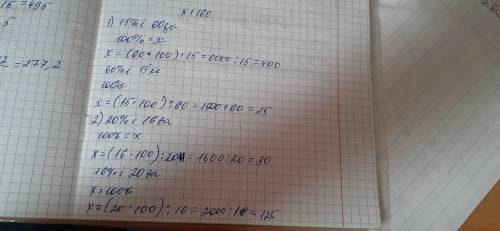 15 = 495
5
= 277,2
№ 1160
1) 15% i 60га
100% = x
x = (60 * 100) : 15 = 6000 : 15 = 400
60% i 15 кг
100%
x = (15 · 100) : 60 = 1500 : 60 = 25
2) 20% i 16га
100% = x
x = (16 · 100) : 20 = 1600 : 20 = 80
16% i 20га
x = 100%
x = (20 · 100) : 16 = 2000 : 16 = 125